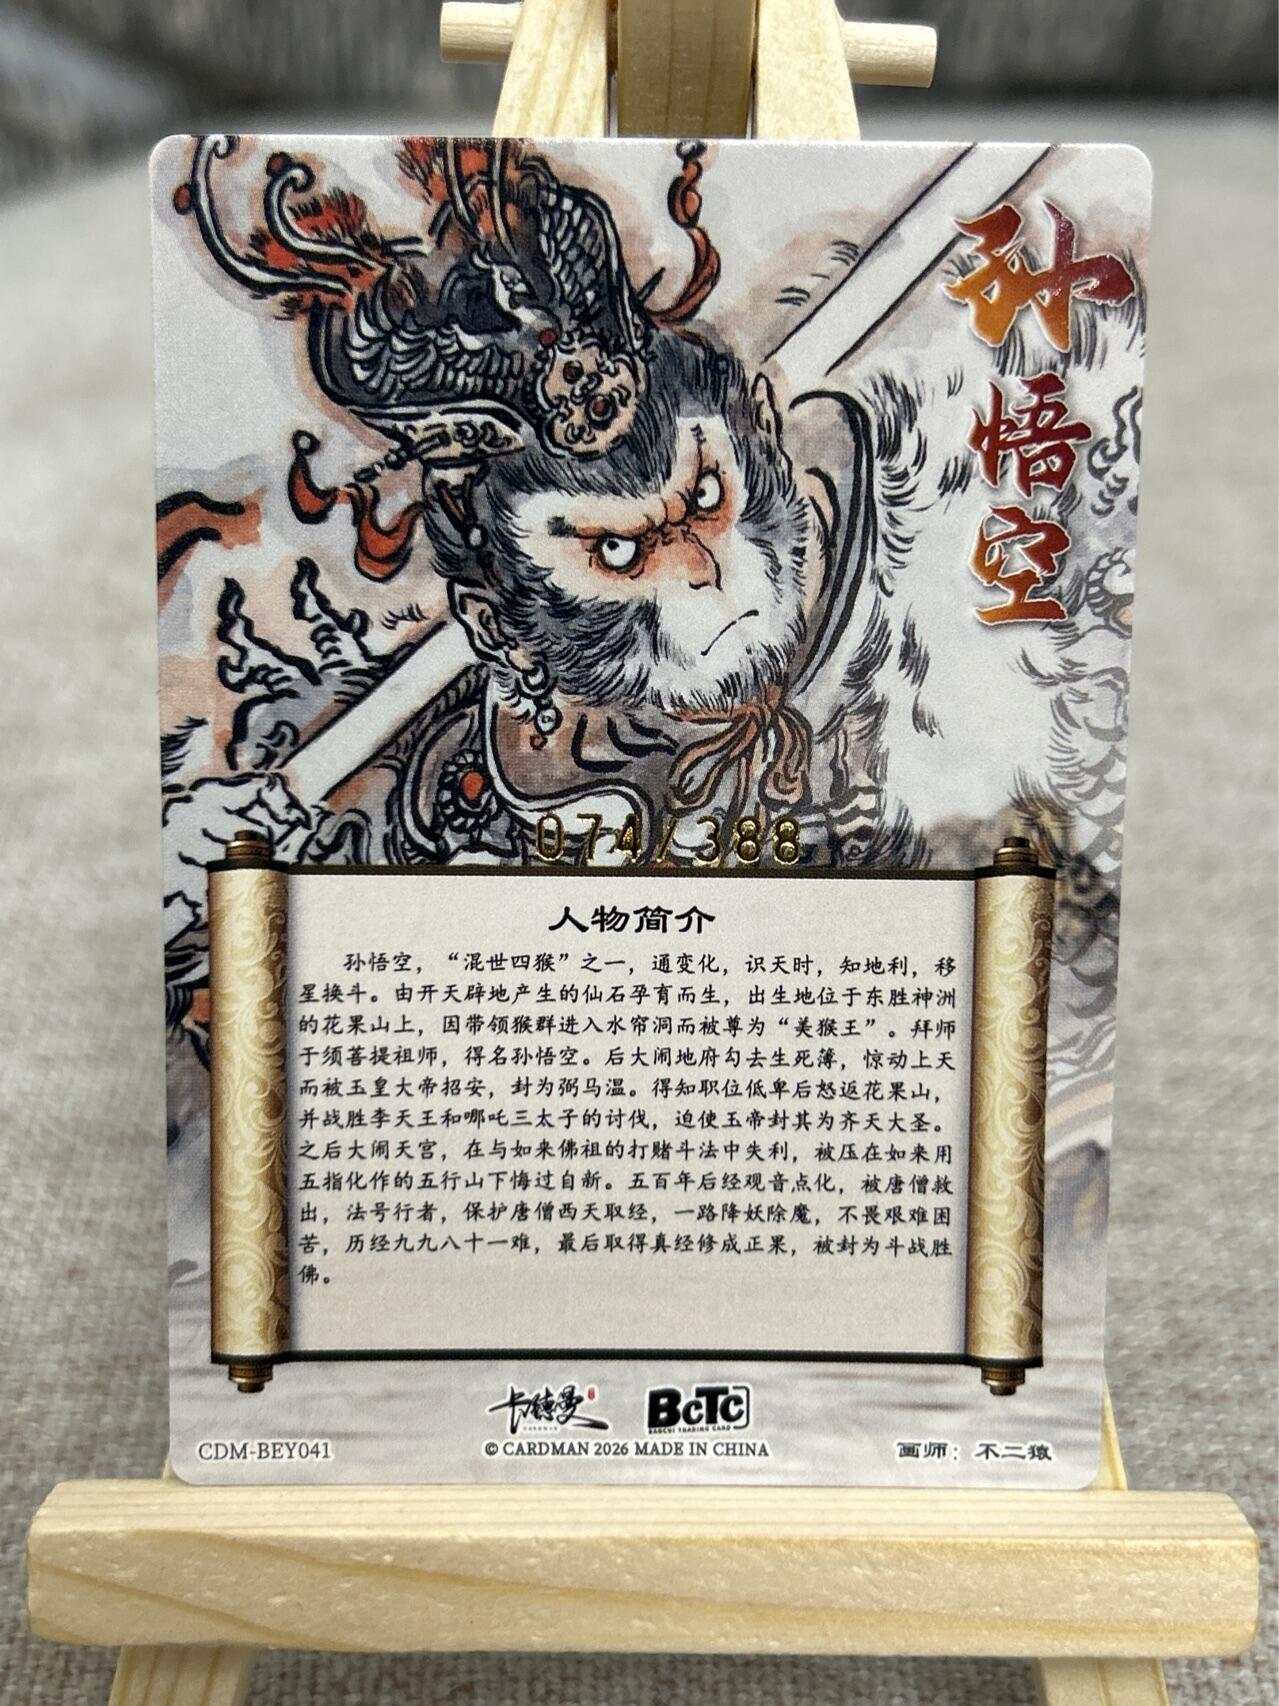 孙悟空
074/388
人物简介
孙悟空，“混世四猴”之一，通变化，识天时，知地利，移
星换斗。由开天辟地产生的仙石孕育而生，出生地位于东胜神洲
的花果山上，因带领猴群进入水帘洞而被尊为“美猴王”。拜师
于须菩提祖师，得名孙悟空。后大闹地府勾去生死簿，惊动上天
而被玉皇大帝招安，封为弼马温。得知职位低卑后怒返花果山，
并战胜李天王和哪吒三太子的讨伐，迫使玉帝封其为齐天大圣。
之后大闹天宫，在与如来佛祖的打赌斗法中失利，被压在如来用
五指化作的五行山下悔过自新。五百年后经观音点化，被唐僧救
出，法号行者，保护唐僧西天取经，一路降妖除魔，不畏艰难困
苦，历经九九八十一难，最后取得真经修成正果，被封为斗战胜
佛。
卡德曼 BCTC
© CARDMAN 2026 MADE IN CHINA
CDM-BEY041
画师：不二猿